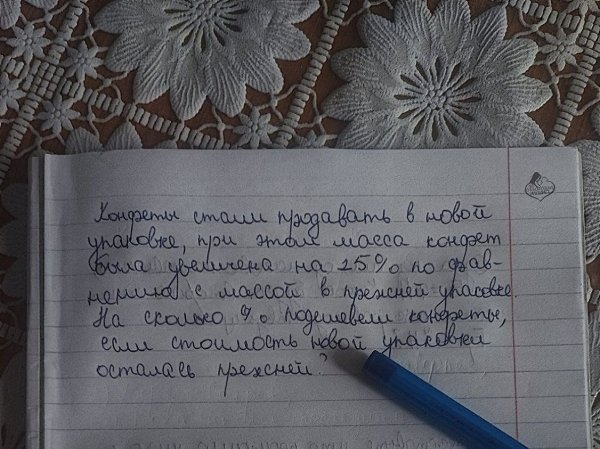 Конфеты стали продавать в новой
упаковке, при этом масса конфет
была увеличена на 25% по срав-
нению с массой в прежней упаковке.
На сколько % подешевели конфеты,
если стоимость новой упаковки
осталась прежней?